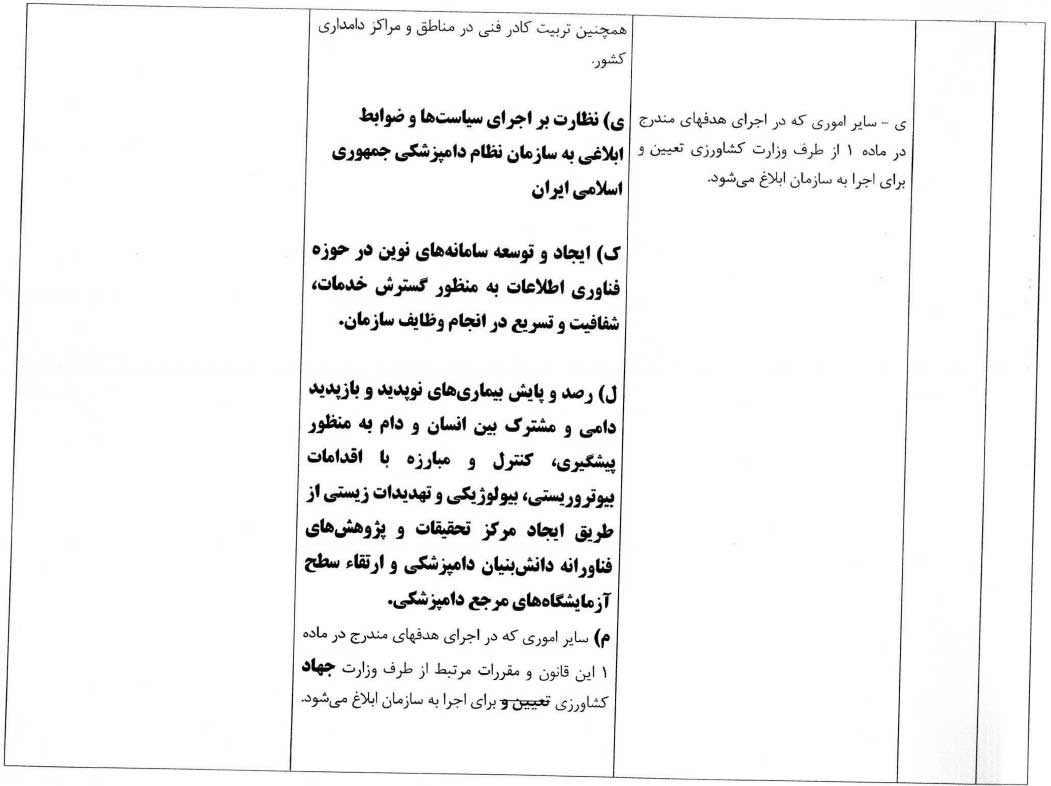 ی - سایر اموری که در اجرای هدفهای مندرج
در ماده ۱ از طرف وزارت کشاورزی تعیین و
برای اجرا به سازمان ابلاغ می‌شود.
همچنین تربیت کادر فنی در مناطق و مراکز دامداری
کشور.
ی) نظارت بر اجرای سیاست‌ها و ضوابط
ابلاغی به سازمان نظام دامپزشکی جمهوری
اسلامی ایران
ک) ایجاد و توسعه سامانه‌های نوین در حوزه
فناوری اطلاعات به منظور گسترش خدمات،
شفافیت و تسریع در انجام وظایف سازمان.
ل) رصد و پایش بیماری‌های نوپدید و بازپدید
دامی و مشترک بین انسان و دام به منظور
پیشگیری، کنترل و مبارزه با اقدامات
بیوتروریستی، بیولوژیکی و تهدیدات زیستی از
طریق ایجاد مرکز تحقیقات و پژوهش‌های
فناورانه دانش‌بنیان دامپزشکی و ارتقاء سطح
آزمایشگاه‌های مرجع دامپزشکی.
م) سایر اموری که در اجرای هدفهای مندرج در ماده
۱ این قانون و مقررات مرتبط از طرف وزارت جهاد
کشاورزی تعیین و برای اجرا به سازمان ابلاغ می‌شود.